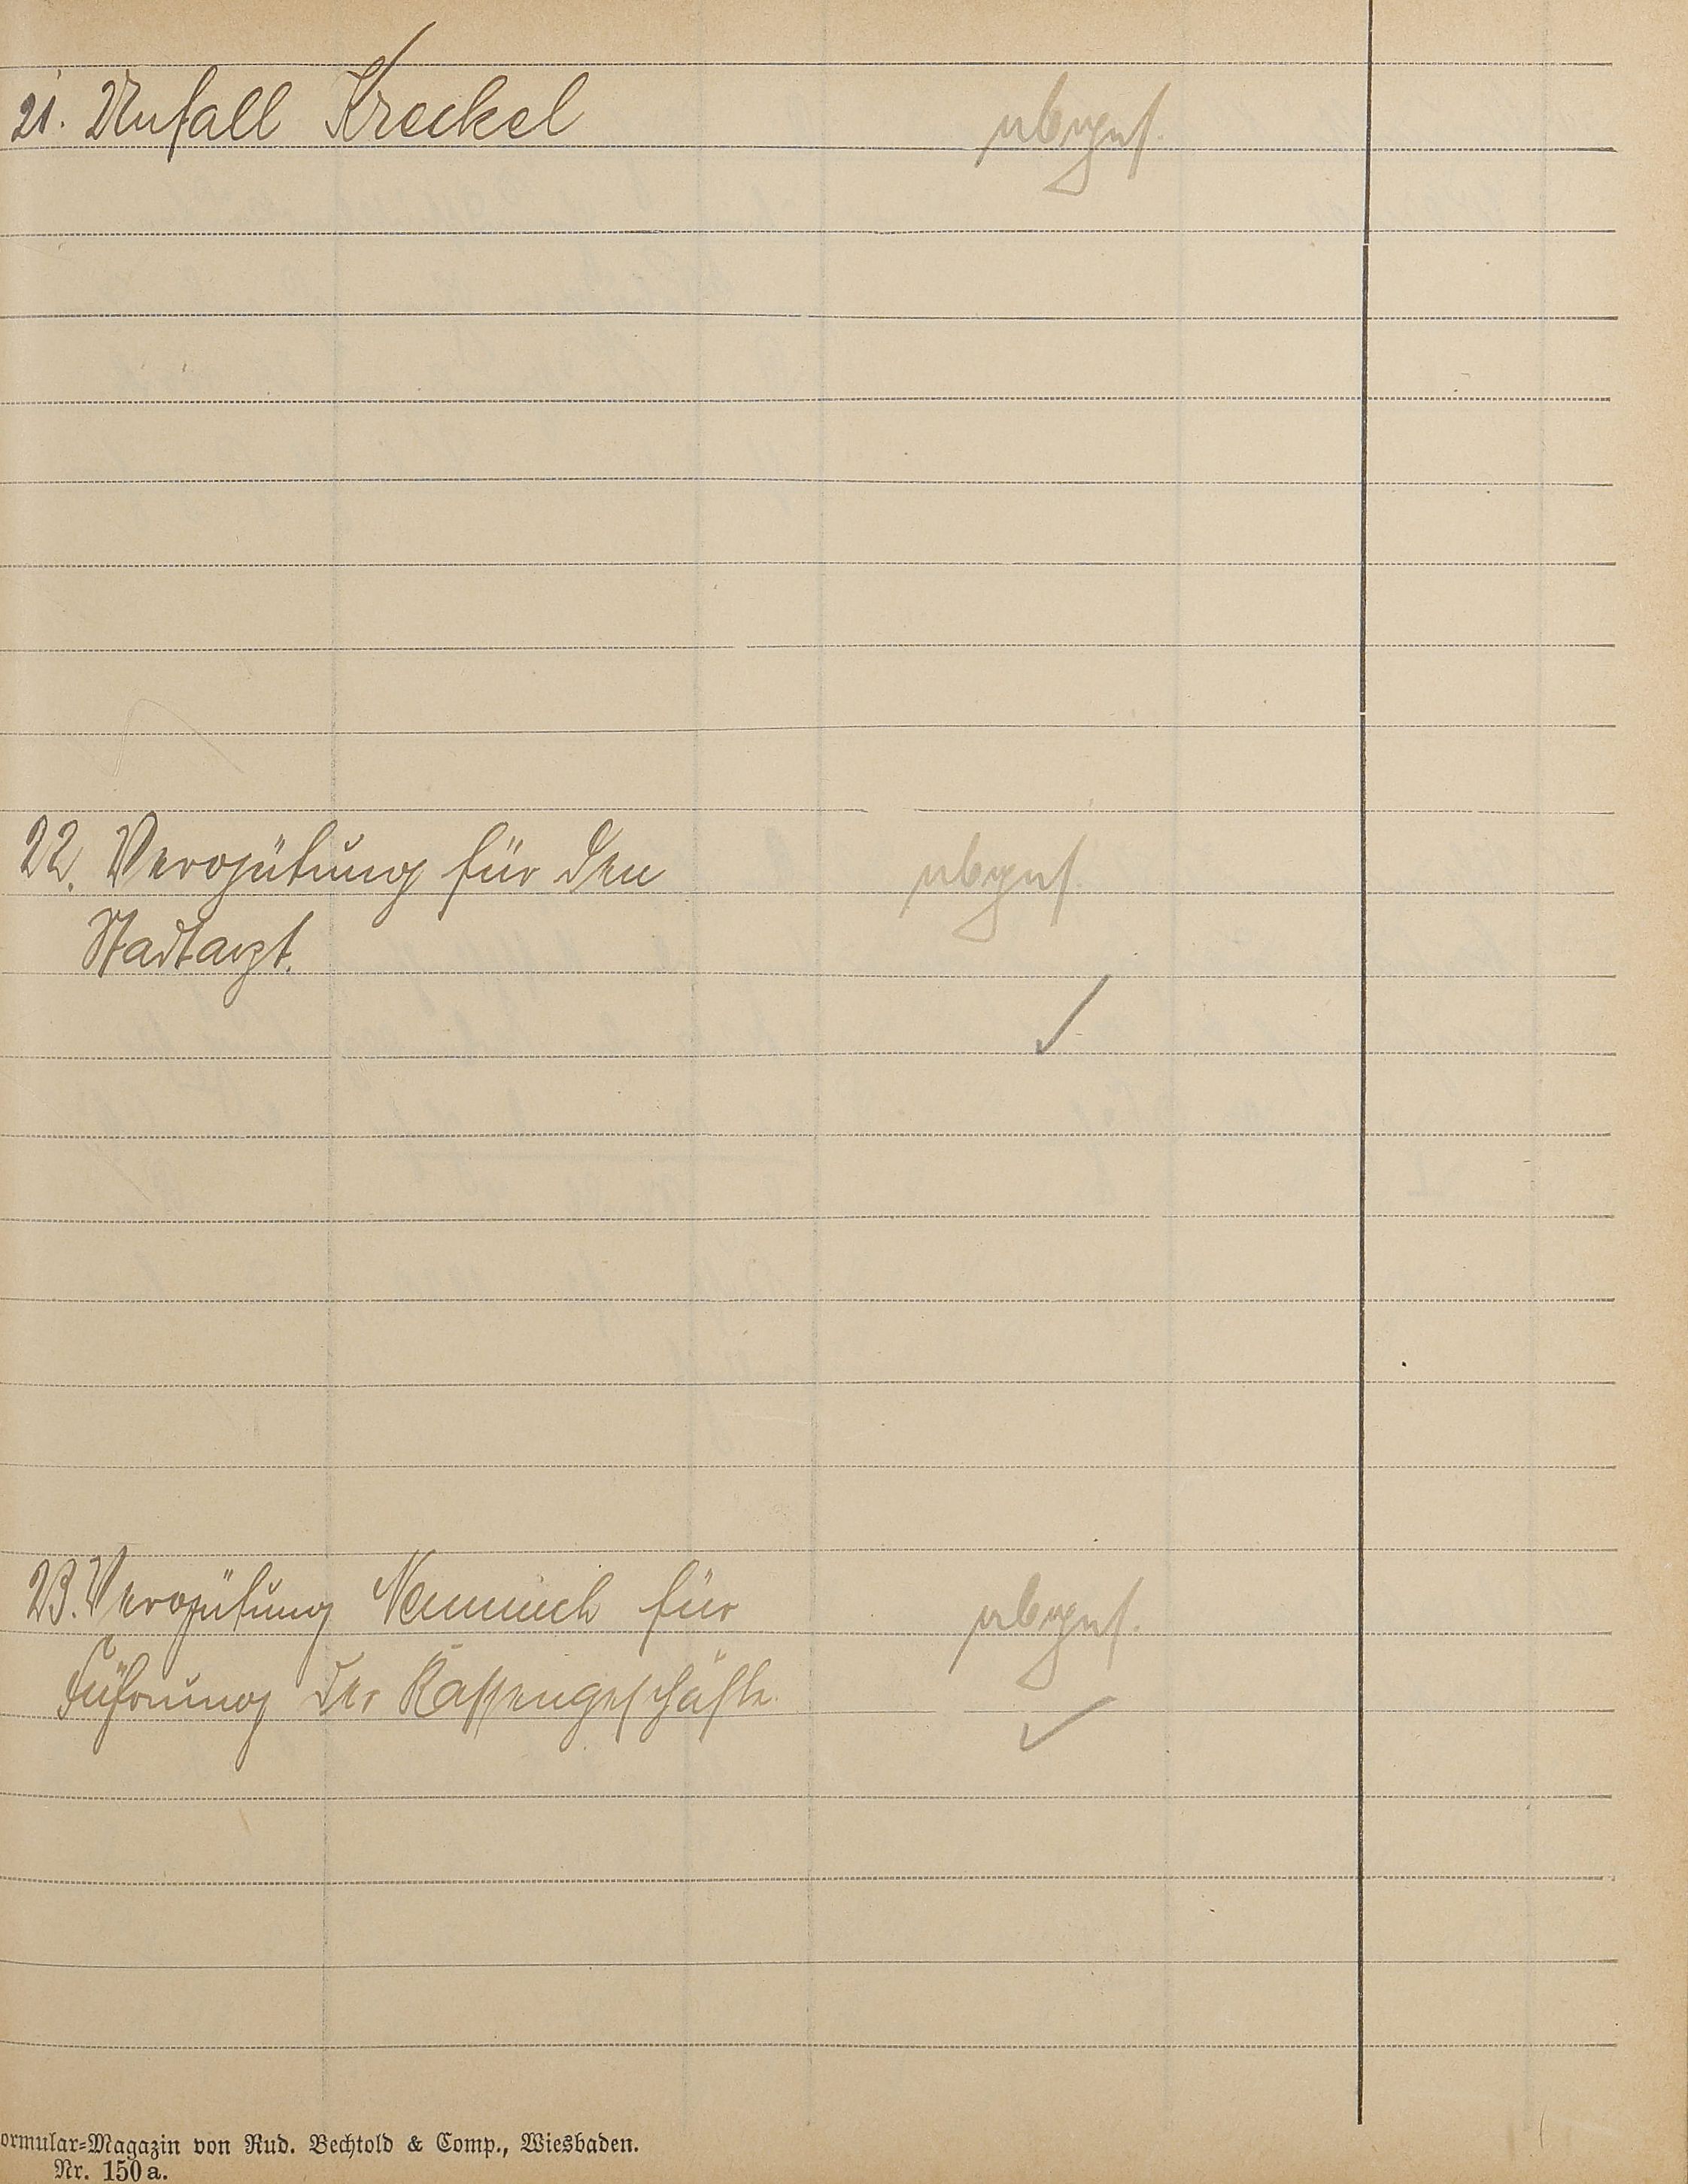 21. Unfall Kreckel
abges.
22. Vergütung für den
abges.
Stadtarzt.
23. Vergütung für
abges.
Führung der Kassengeschäfte.
ormular-Magazin von Rud. Bechtold & Comp., Wiesbaden.
Nr. 150a.